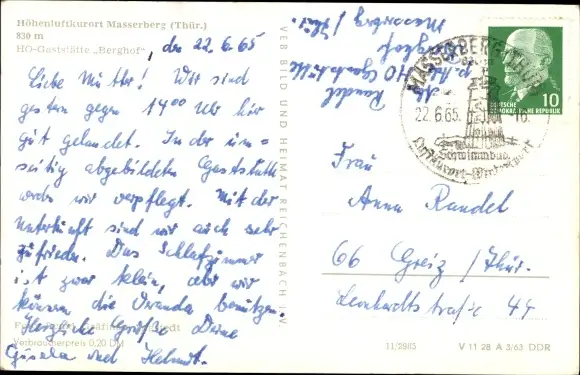 Höhenluftkurort Masserberg (Thür.)
830 m
HO-Gaststätte „Berghof“
, den 22.6.65
Liebe Mutter! Wir sind
gestern gegen 14⁰⁰ Uhr hier
gut gelandet. In der um=
seitig abgebildeten Gaststätte
werden wir verpflegt. Mit der
Unterkunft sind wir auch sehr
zufrieden. Das Schlafzimmer
ist zwar klein, aber wir
können die Veranda benutzen.
Herzliche Grüße Deine
Gisela und Helmut.
Verbraucherpreis 0,20 DM
VEB BILD UND HEIMAT REICHENBACH i. V.
Randel
HO Gaststätte
Berghof
Masserberg / Thür.
MASSERBERG
22.6.65
16
Schwimmbad
Luftkurort-Wintersport
DEUTSCHE
DEMOKRATISCHE REPUBLIK
10
Frau
Anna Randel
66 Greiz / Thür.
Leonhardtstraße 44
11/2885
V 11 28 A 3/63 DDR